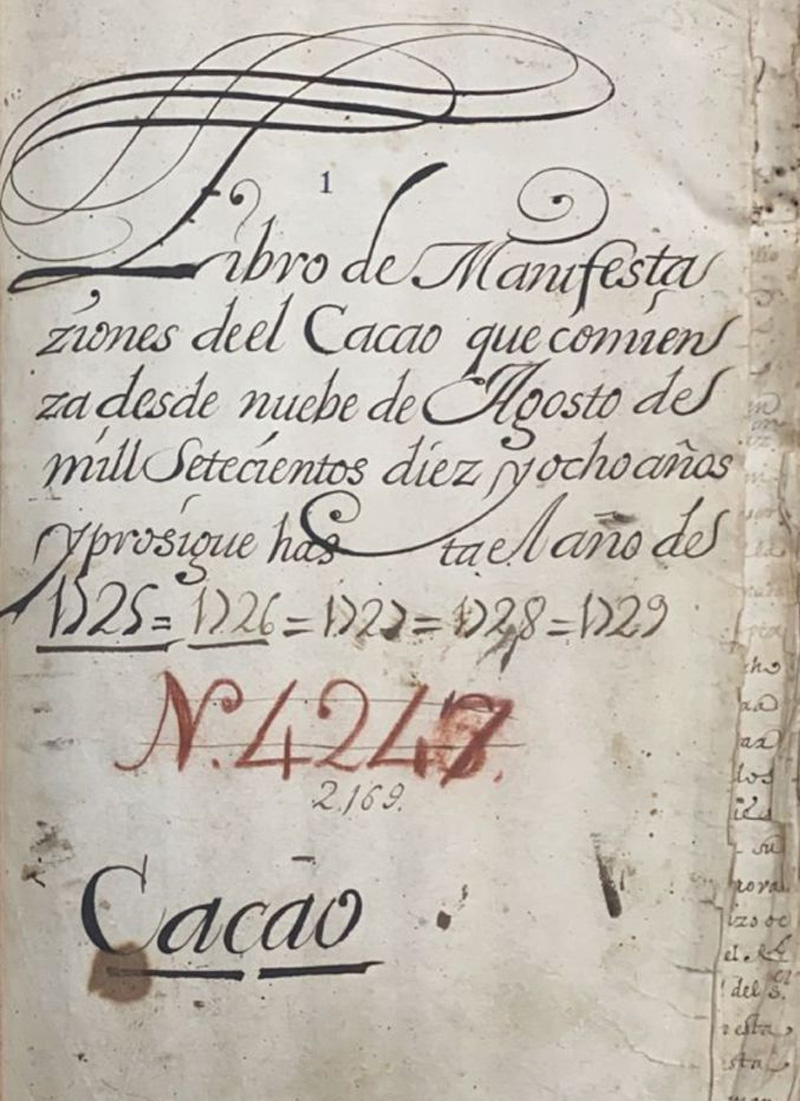 1
Libro de Manifesta
ziones de el Cacao que comien
za desde nuebe de Agosto de
mill Setecientos diez y ocho años
y prosigue has ta el año de
1725 = 1726 = 1727 = 1728 = 1729
N. 4247.
2.169.
Cacao
los
su
el
del S.